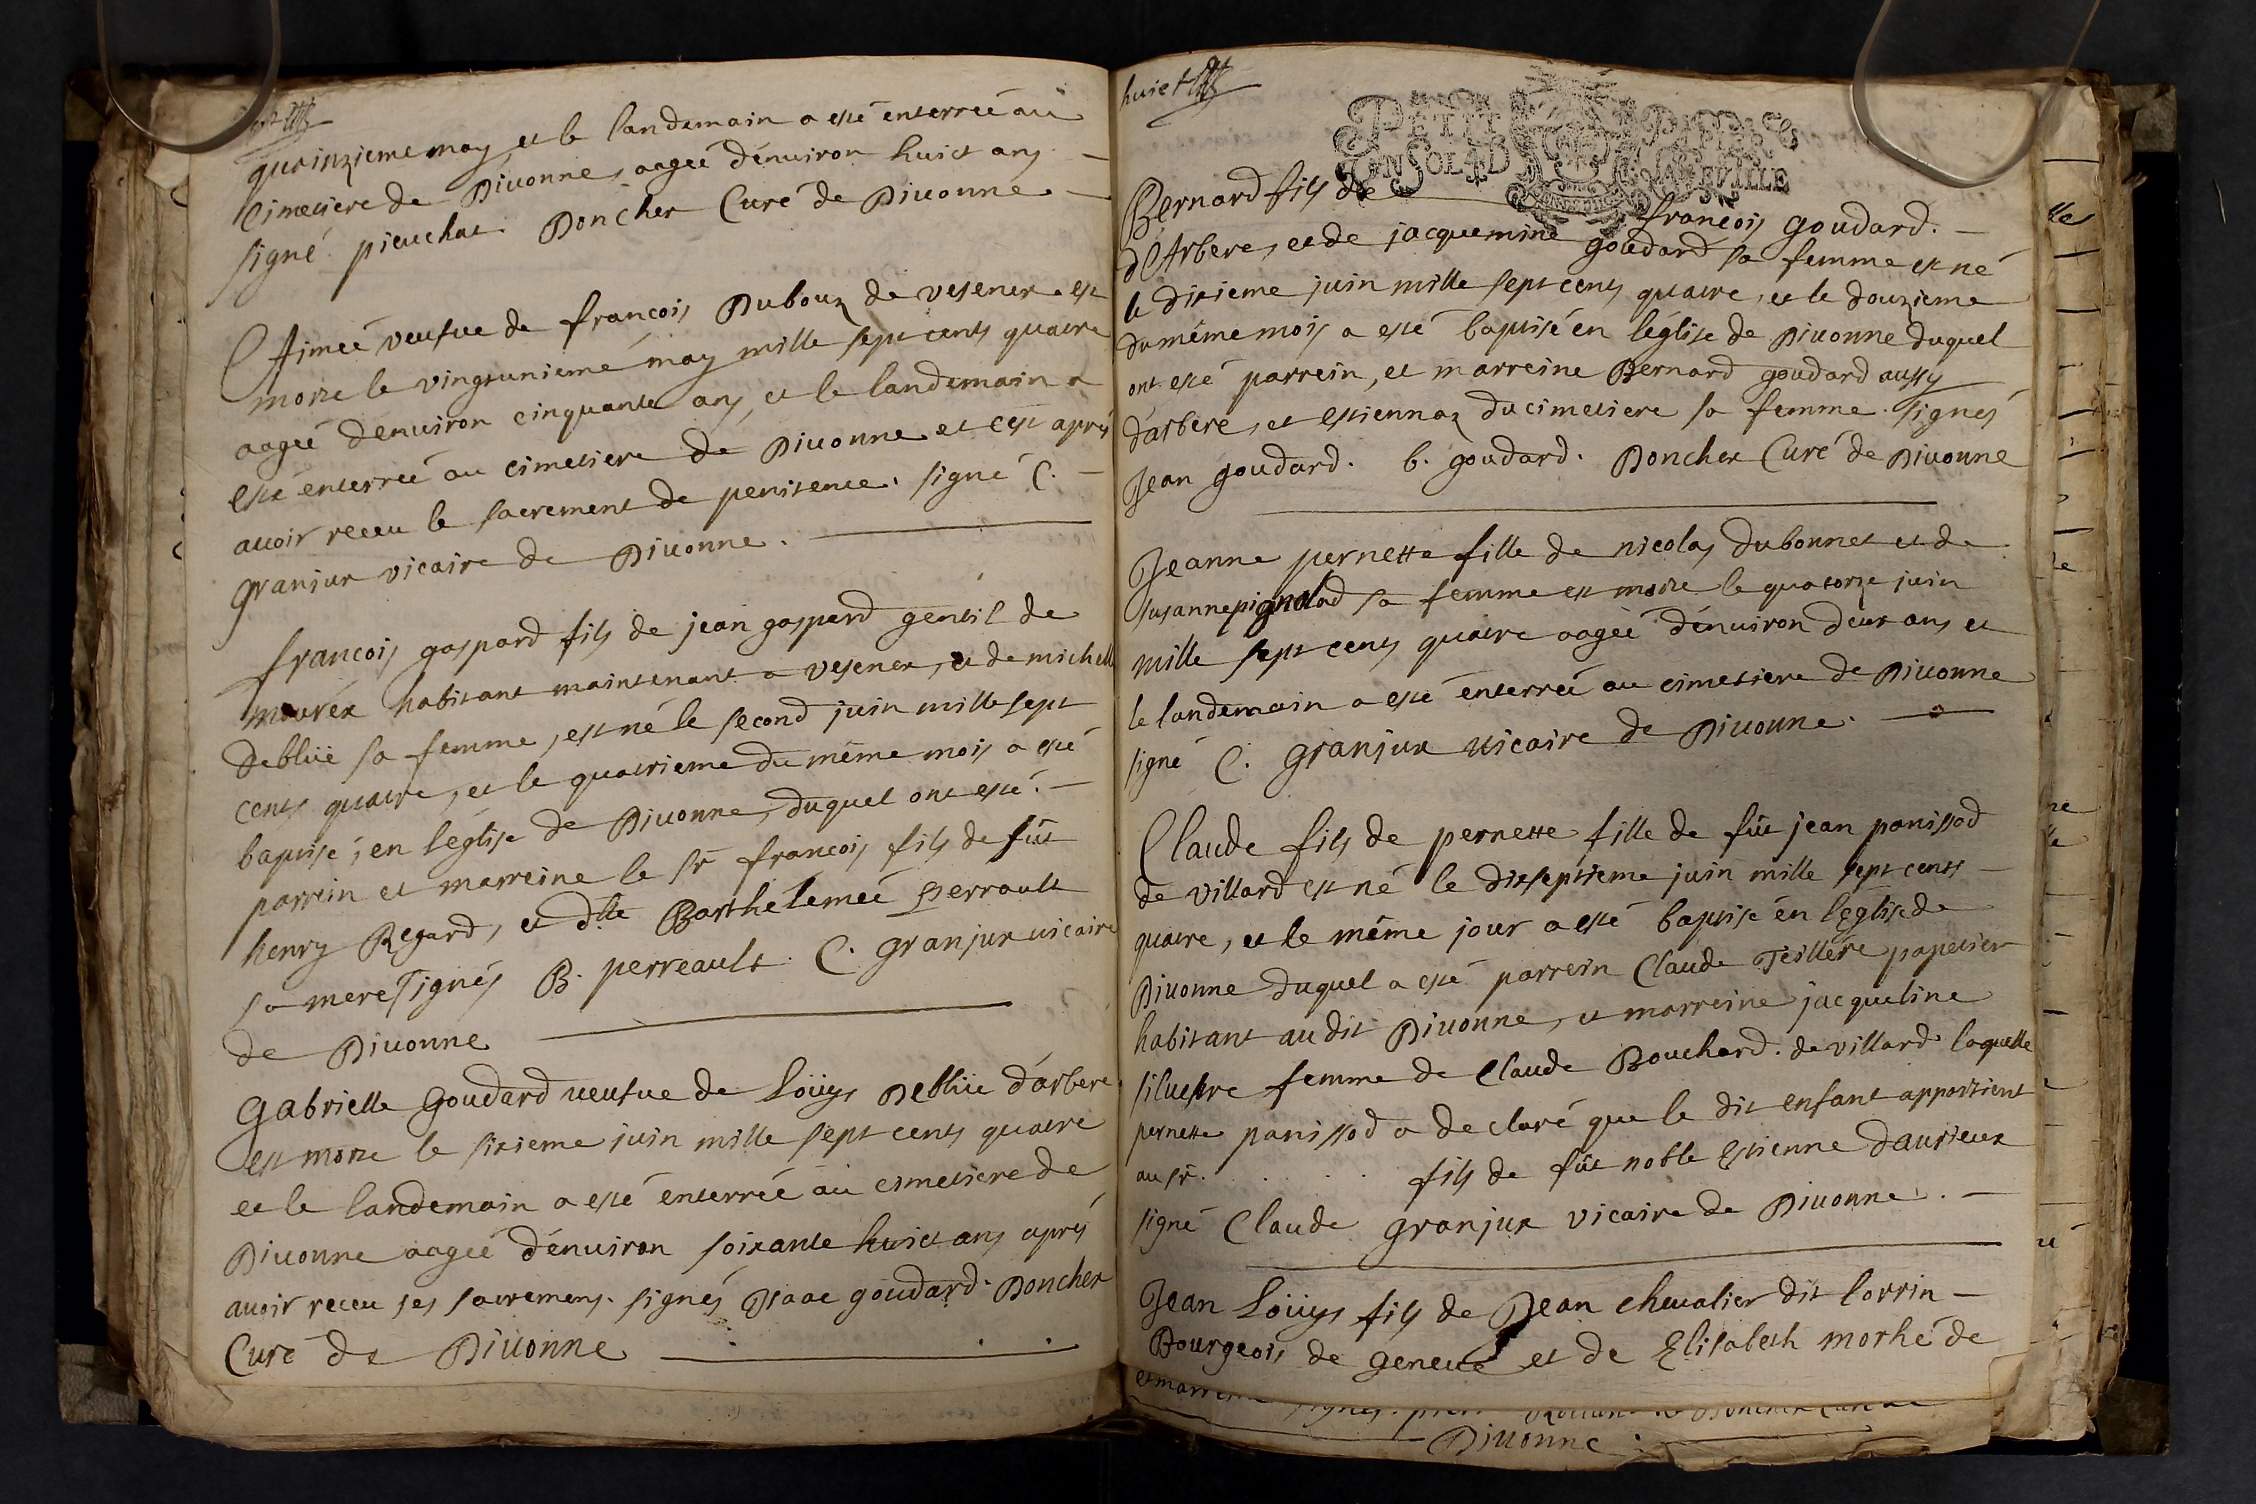 quainzieme may et le landemain a esté enterreé au
Cimetiere de Diuonne, aageé d'enuiron huict ans
signé pieuchat. Doncher Curé de Diuonne.
Aimeé veufue de françois Dubouz de vesenex est
morte le vingtunieme may mille sept cents quatre
aageé denuiron cinquante ans, et le landemain a
esté enterreé au cimetiere de Diuonne et cest aprés
auoir receu le sacrement de penitence. signé C.
Granjux vicaire de Diuonne.
françois gaspard fils de jean gaspard gentil de
mouréx habitant maintenant a vesenex, et de michelle
deblüe sa femme, est né le second juin mille sept
cents quatre, et le quatrieme du même mois a esté
baptisé, en léglise de Diuonne, duquel ont esté.
parrein et marreine le sr françois fils de fût
henry Regard, et dlle Barthélemeé perrault
sa mere signés B. perreault. C. granjux vicaire
de Diuonne
Gabrielle Goudard ueufue de Loüys Deblüe d'arbere
est morte le sixieme juin mille sept cents quatre
et le landemain a esté enterreé au cimetiere de
Diuonne aageé d'enuiron soixante huict ans aprés
auoir receu ses sacremens. signés Isaac goudard. Doncher
Curé de Diuonne
huict
PETIT PAPIER
UN SOL LA FEVILLE
Bernard fils de françois goudard.
d'Arbere, et de jacquemine goudard sa femme est né
le dixieme juin mille sept cents quatre, et le douzieme
du même mois a esté baptisé en léglise de Diuonne duquel
ont esté parrein, et marreine Bernard goudard aussy
d'arbere, et estiennaz ducimetiere sa femme. signés
Jean goudard. b. goudard. Doncher Curé de Diuonne
Jeanne pernette fille de nicolas dubonnet et de
susanne pignalad sa femme est morte le quatorze juin
mille sept cents quatre aageé d'enuiron deux ans et
le landemain a esté enterreé au cimetiere de Diuonne
signé C. granjux uicaire de Diuonne.
Claude fils de pernette fille de fût jean panissod
de villard est né le dixseptieme juin mille sept cents
quatre, et le même jour a esté baptisé en leglise de
Diuonne duquel a esté parrein Claude Teillére papetier
habitant au dit Diuonne, et marreine jacqueline
siluestre femme de Claude Bouchard. de villard laquelle
pernette panissod a declaré que le dit enfant appartient
au sr. . . . . fils de fût noble Estienne dauxieux
signé Claude granjux vicaire de Diuonne.
Jean Loüys fils de Jean cheualier dit lorrin
Bourgeois de geneue et de Elisabeth morhé de
Diuonne